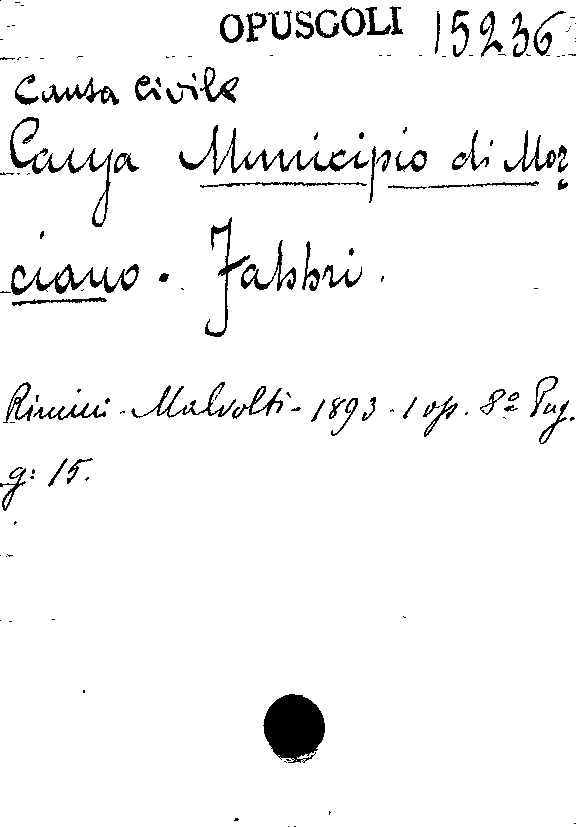 OPUSCOLI 15236
Causa Civile
Causa Municipio di Mor
ciano. Fabbri.
Rimini - Malvolti - 1893 - 1 op. 8º Pag.
g: 15.